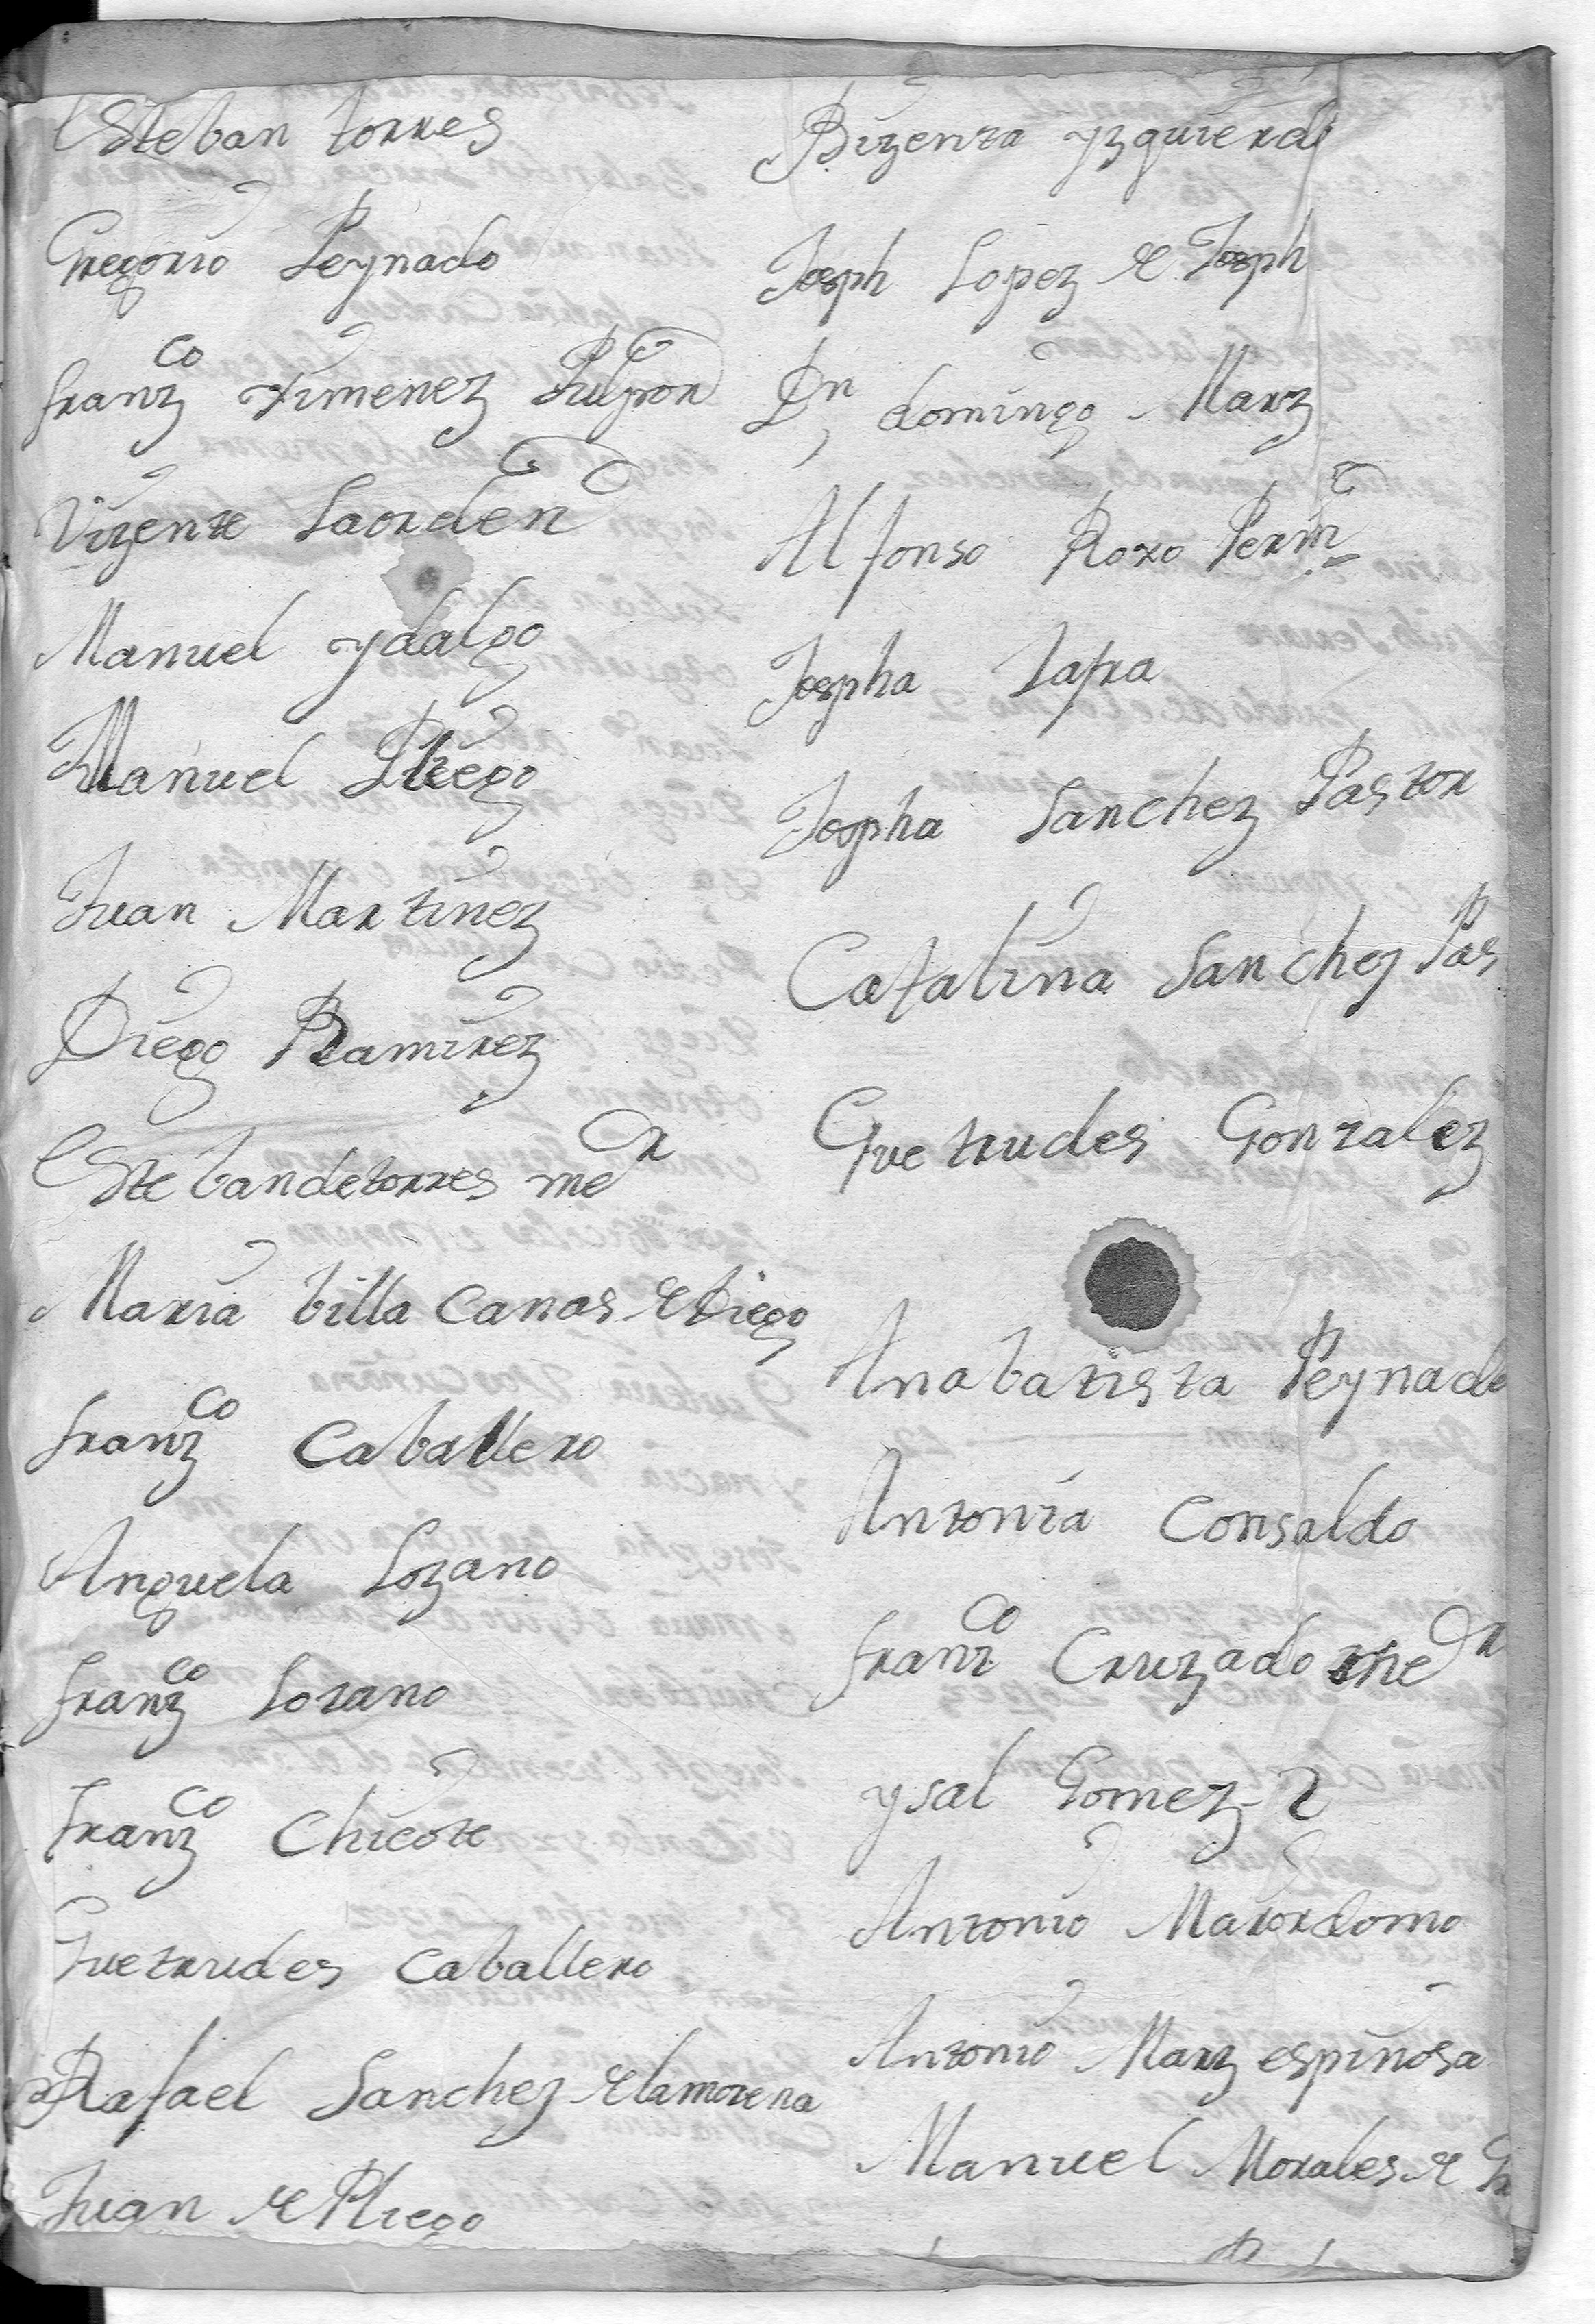 Esteban torres
Gregorio Peynado
franz.co Ximenez Pulpon
Vizente Laorden
Manuel ydalgo
Manuel Pliego
Juan Martinez
Diego Ramirez
Esteban de torres me.r
Maria billa Canas de Diego
franz.co Caballero
Anguela Lozano
franz.co Lozano
franz.co Chicote
Guetrudes Caballero
Rafael Sanchez de la morena
Juan de Pliego
Bizenta yzquierd
Joseph Lopez de Joseph
D.n domingo Marz
Alfonso Roxo
Josepha Zafra
Josepha Sanchez Pastor
Catalina Sanchez Pas
Guetrudes Gonzalez
Ana batista Peynado
Antonia Consaldo
franz.co Cruzado me.r
ysal Gomez 2
Antonio Maxordomo
Antonio Marz espinosa
Manuel Morales de